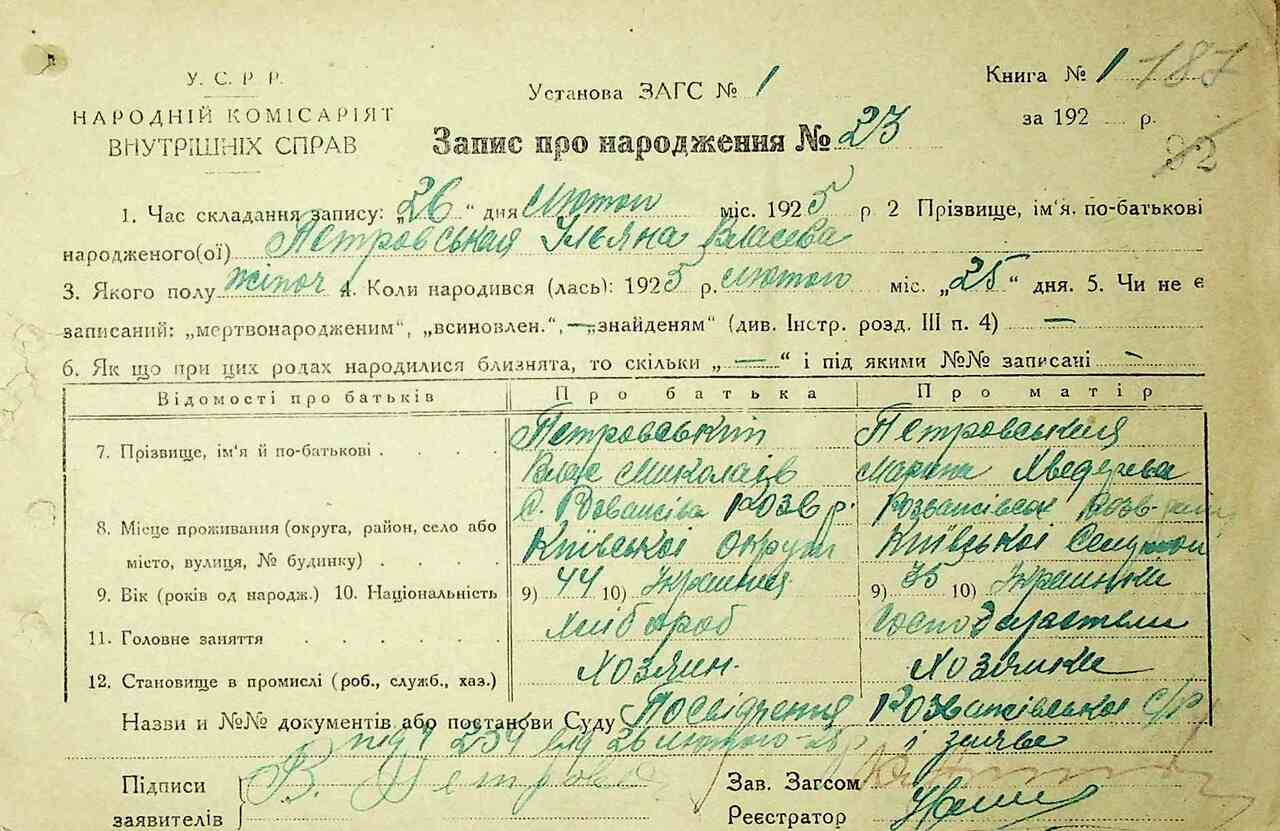 У. С. Р Р.
НАРОДНІЙ КОМІСАРІЯТ
ВНУТРІШНІХ СПРАВ
Установа ЗАГС № 1
Книга № 1 187
за 192 р.
Запис про народження № 23
92
1. Час складання запису: „26“ дня лютого міс. 1925 р 2 Прізвище, ім'я. по-батькові
народженого(ої) Петровськая Ульяна Власева
3. Якого полу жіноч 4. Коли народився (лась): 1925 р. лютого міс. „25“ дня. 5. Чи не є
записаний: „мертвонародженим“, „всиновлен.“, — „знайденям“ (див. Інстр. розд. III п. 4) —
6. Як що при цих родах народилися близнята, то скільки „—“ і під якими №№ записані —
Відомості про батьків Про батька Про матір
7. Прізвище, ім'я й по-батькові . . . .
Петровський
Влас Миколаїв
Марина Хведорева
8. Місце проживання (округа, район, село або
місто, вулиця, № будинку) . . . .
С. Розважів Розв р.
Київської округи
Київської
9. Вік (років од народж.) 10. Національність 9) 44 10) 9) 35 10)
11. Головне заняття . . . . . . Хлібороб
12. Становище в промислі (роб., служб., хаз.) Хозяин. Хозяйка
Назви и №№ документів або постанови Суду Посвідчення Розважівської с/р
від 26 лютого і заява
Підписи
заявителів
В. Петровс
Зав. Загсом
Реєстратор